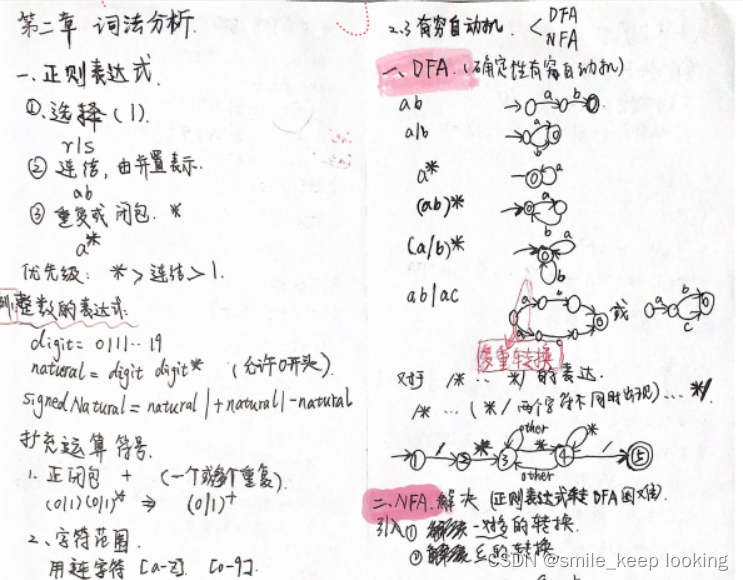 第二章 词法分析.
一、正则表达式
①、选择 (|).
r|s
② 连结, 由并置表示.
ab
③ 重复或闭包. *
a*
优先级: * > 连结 > |.
例: 整数的表达式:
digit = 0|1|...|9
natural = digit digit* (允许0开头).
signedNatural = natural | +natural | -natural
扩充运算符号.
1. 正闭包 + (一个或多个重复).
(0|1)(0|1)* ⇒ (0|1)+
2、字符范围.
用连字符 [a-z]. [0-9].
2.3 有穷自动机. < DFA
NFA
一、DFA. (确定性有穷自动机)
ab
a b
a|b
a
b
a*
a
(ab)*
a
b
(a/b)*
a
b
ab|ac
a b
a
或
a b
c
转换
对于 /* ... */ 的表达.
/* ... (*/ 两个字符不同时出现) ... */
other *
1 / 2 * 3 * 4 / 5
other
二、NFA. 解决 (正则表达式转DFA困难)
引入① 一对多的转换.
② ε的转换
CSDN @smile_keep looking